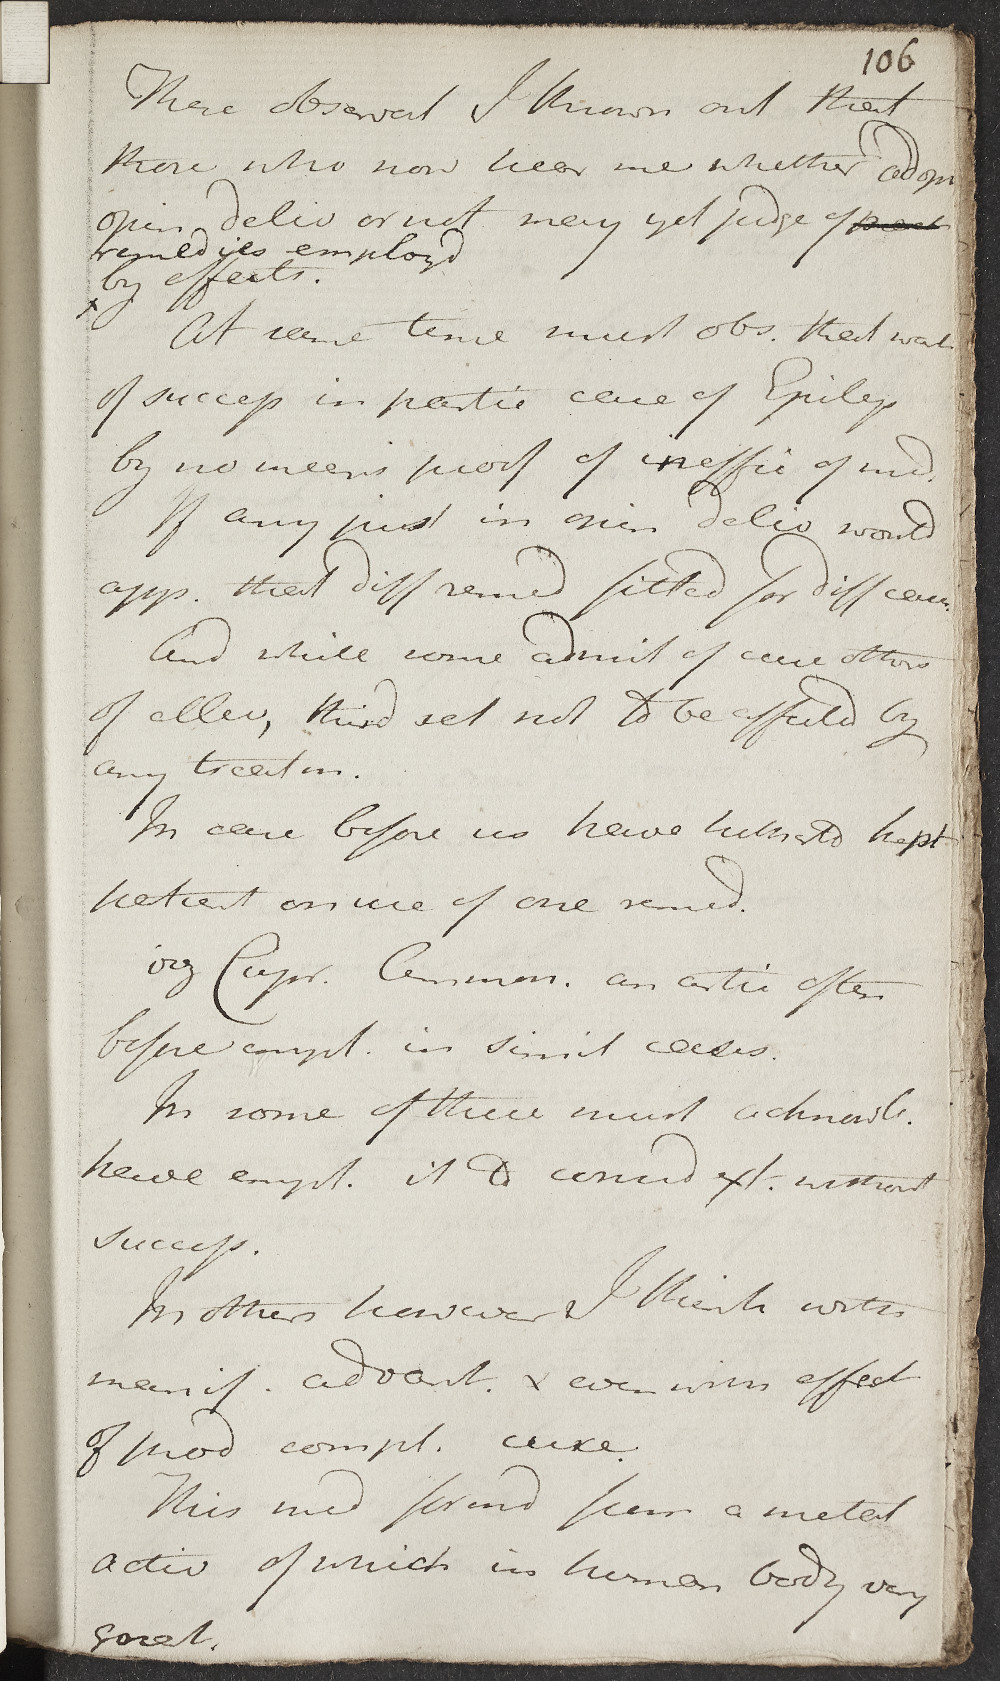 106
There observat I thrown out that
those who now hear me whether adopt
opin deliv or not may yet judge of
remedies employd
by effects.
x
At same time must obs. that want
of success in partic case of Epileps
by no means proof of ineffic of med.
If any just in opin deliv would
app. that diff remed fitted for diff cases.
And while some admit of cure others
of allev, third set not to be affected by
any treatm.
In case before us have hitherto kept
patient on use of one remed.
viz Cupr. Ammon. an artic often
before empl. in simil cases.
In some of these must acknowl.
have empl. it to consid ext. without
success.
In others however I think with
manif. advant. & even with effect
of prod compl. cure.
This med formd from a metal
activ of which in human body very
great.